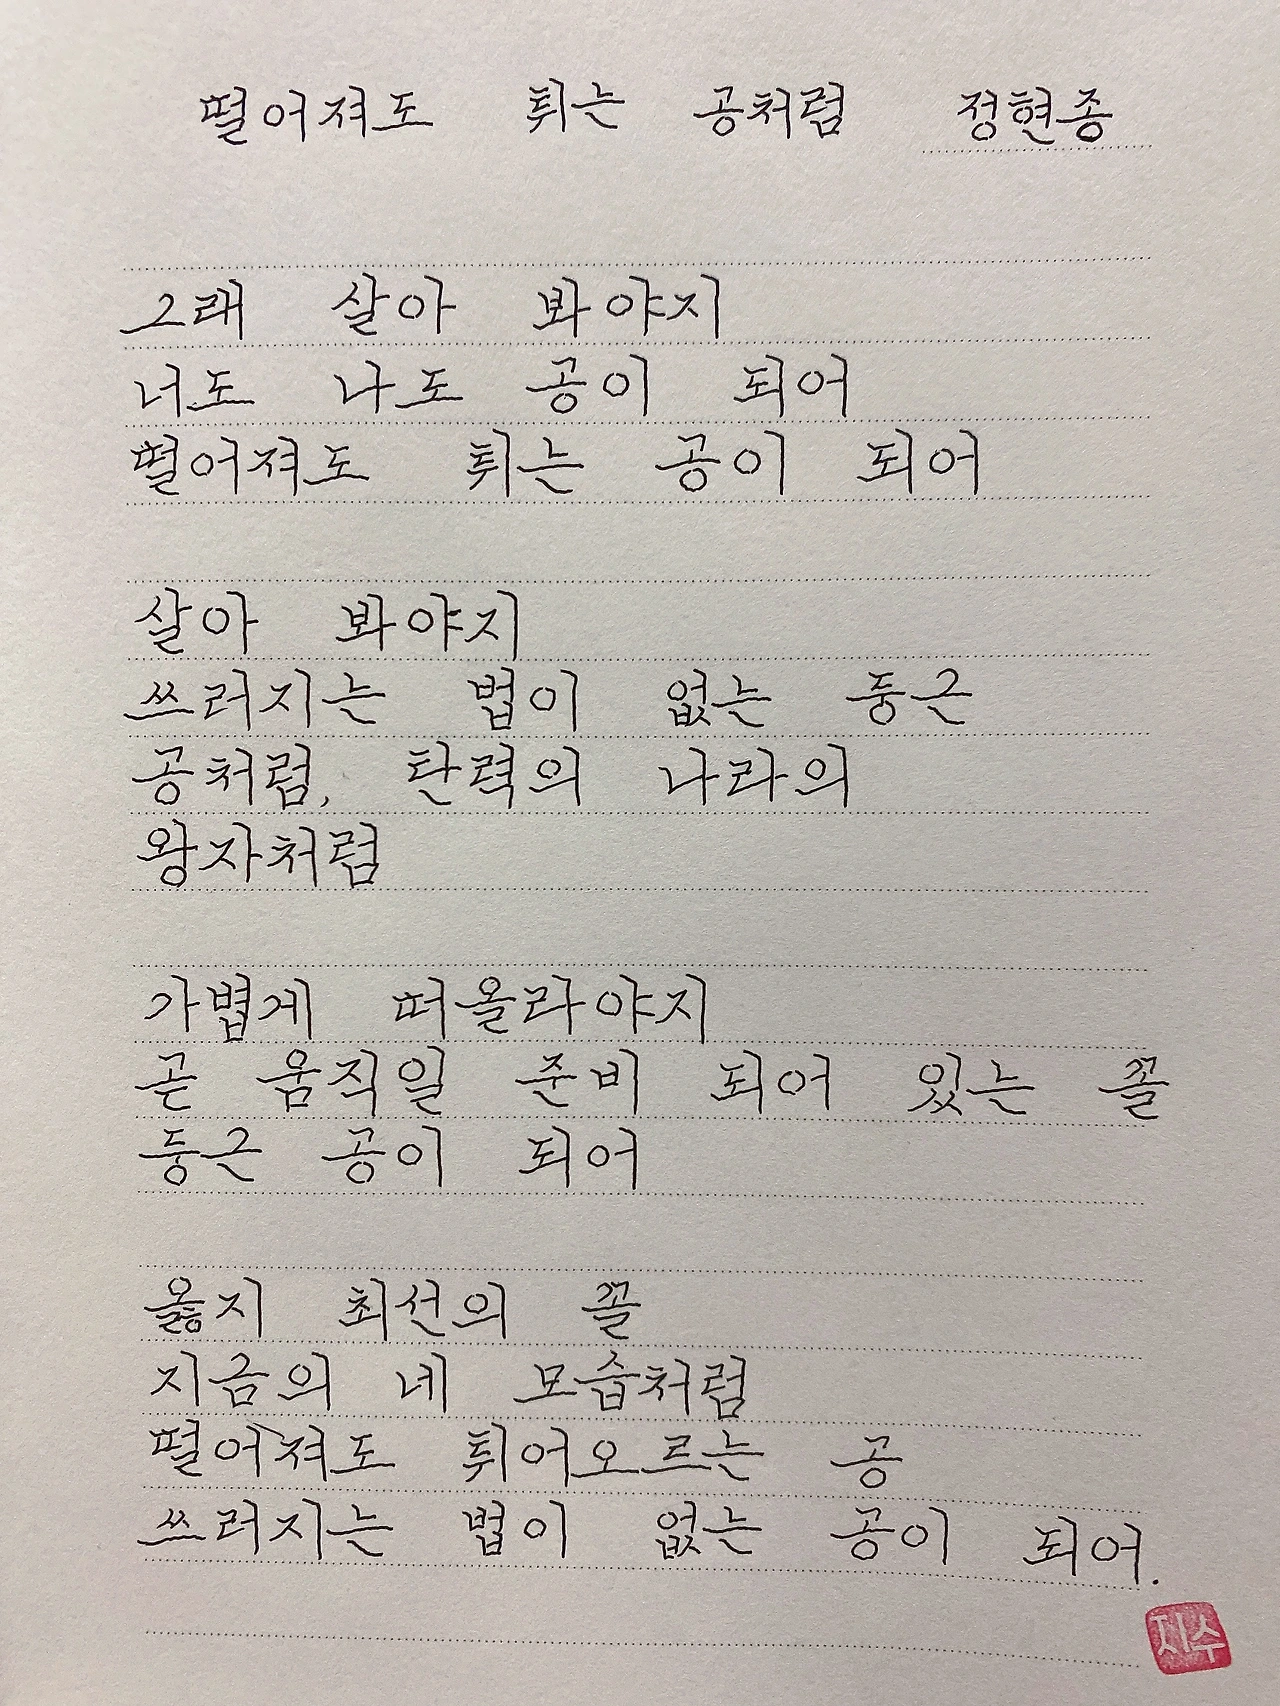 떨어져도 튀는 공처럼 정현종
그래 살아 봐야지
너도 나도 공이 되어
떨어져도 튀는 공이 되어
살아 봐야지
쓰러지는 법이 없는 둥근
공처럼, 탄력의 나라의
왕자처럼
가볍게 떠올라야지
곧 움직일 준비 되어 있는 꼴
둥근 공이 되어
옳지 최선의 꼴
지금의 네 모습처럼
떨어져도 튀어오르는 공
쓰러지는 법이 없는 공이 되어.
지수